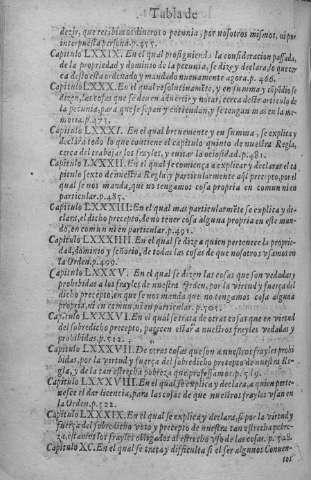 Tabla de
dezir, que recibian dineros o pecunia, por nosotros mismos, ni por
interpuesta persona. p.455.
Capitulo LXXIX. En el qual prosiguiendo la consideracion passada,
de la propiedad y dominio de la pecunia, se dize y declara, lo que
ca desto esta ordenado y mandado nuevamente agora. p. 466.
Capitulo LXXX. En el qual y en summa y
dizen, las cosas que se deven advertir y notar, cerca deste articulo de
la pecunia, para que se sepan y entiendan, y se tengan mas en la me-
moria. p.473.
Capitulo LXXXI. En el qual brevemente y en summa, se explica y
declara todo lo que contiene el capitulo quinto de nuestra Regla,
cerca del trabajar los frayles, y evitar la ociosidad. p.481.
Capitulo LXXXII. En el qual se comiença a explicar y declarar el ca
pitulo sexto de nuestra Regla y particularmente aquel precepto, por el
qual se nos manda, que no tengamos cosa propria en comun ni en
particular. p.485.
Capitulo LXXXIII. En el qual mas particularmēte se explica y de-
clara, el dicho precepto, de no tener cosa alguna propria en este mun-
do, en comun ni en particular. p.491.
Capitulo LXXXIIII. En el qual se dize a quien pertenece la proprie-
dad, dominio y señorio, de todas las cosas de que nosotros usamos en
la Orden. p.499.
Capitulo LXXXV. En el qual se dizen las cosas que son vedadas y
prohibidas a los frayles de nuestra Orden, por la virtud y fuerça del
dicho precepto, en que se nos manda que no tengamos cosa alguna
propria, ni en comun, ni en particular. p.505.
Capitulo LXXXVI. En el qual se trata de otras cosas que en virtud
del sobredicho precepto, parecen estar a nuestros frayles vedadas y
prohibidas. p.512.
Capitulo LXXXVII. De otras cosas que son a nuestros frayles prohi
bidas, por la virtud y fuerça del sobredicho precepto de nuestra Re-
gla, y de la tan estrecha pobreza que professamos. p.519.
Capitulo LXXXVIII. En el qual se explica y declara, a quien perte-
nesce el dar licencia, para las cosas de que nuestros frayles usan en
la Orden. p.522.
Capitulo LXXXIX. En el qual se explica y declara, si por la virtud y
fuerça del sobredicho voto y precepto de nuestra tan estrecha pobre-
za, estan los frayles obligados al estrecho uso de las cosas. p.528.
Capitulo XC. En el qual se trata y difficulta si el ser algunos Conven-
tos